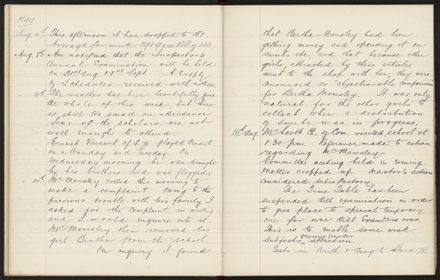 1899
Aug 4th This afternoon it has dropped to 181
Average for week 191.9 on Roll 223
Aug 8th Am notified that the Inspector's
Annual Examination will be held
on 31st Aug + 1st Sept. A supply
of Schedules received with letter.
The weather has been beautifully fine
the whole of this week but there
is still the small in attendance
Some of the scholars are not
well enough to attend.
Ernest Vincent of S. played truant
on Monday and Tuesday. On
Wednesday morning he was brought
by his brother and was flogged.
Mr Moseley called this morning to
make a complaint. Owing to the
previous trouble with his family I
asked for the complaint in writing
and I would inquire into it.
Mr Moseley then removed his
girl Bertha from the school.
On inquiry I found
that Bertha Moseley had been
getting money and spending it on
sweets etc. and that because other
girls, attracted by these articles
went to the shop with her, they were
announced as objectionable companions
for Bertha Moseley. It was only
natural for the other girls to
collect when a distribution
of sweets etc. was in progress.
Mr Scott Ch. of Com. visited school at
1.30 p.m. Reference made to action
regarding Mr Moseley.
Committee meeting held in evening.
Matter cropped up. Master's action
considered
The Time Table has been
suspended till examination in order
to give place to special temporary
one for use till Examination.
This is to enable some weak
subjects, attention.
Tests in Arith + Geog to Stand. IV